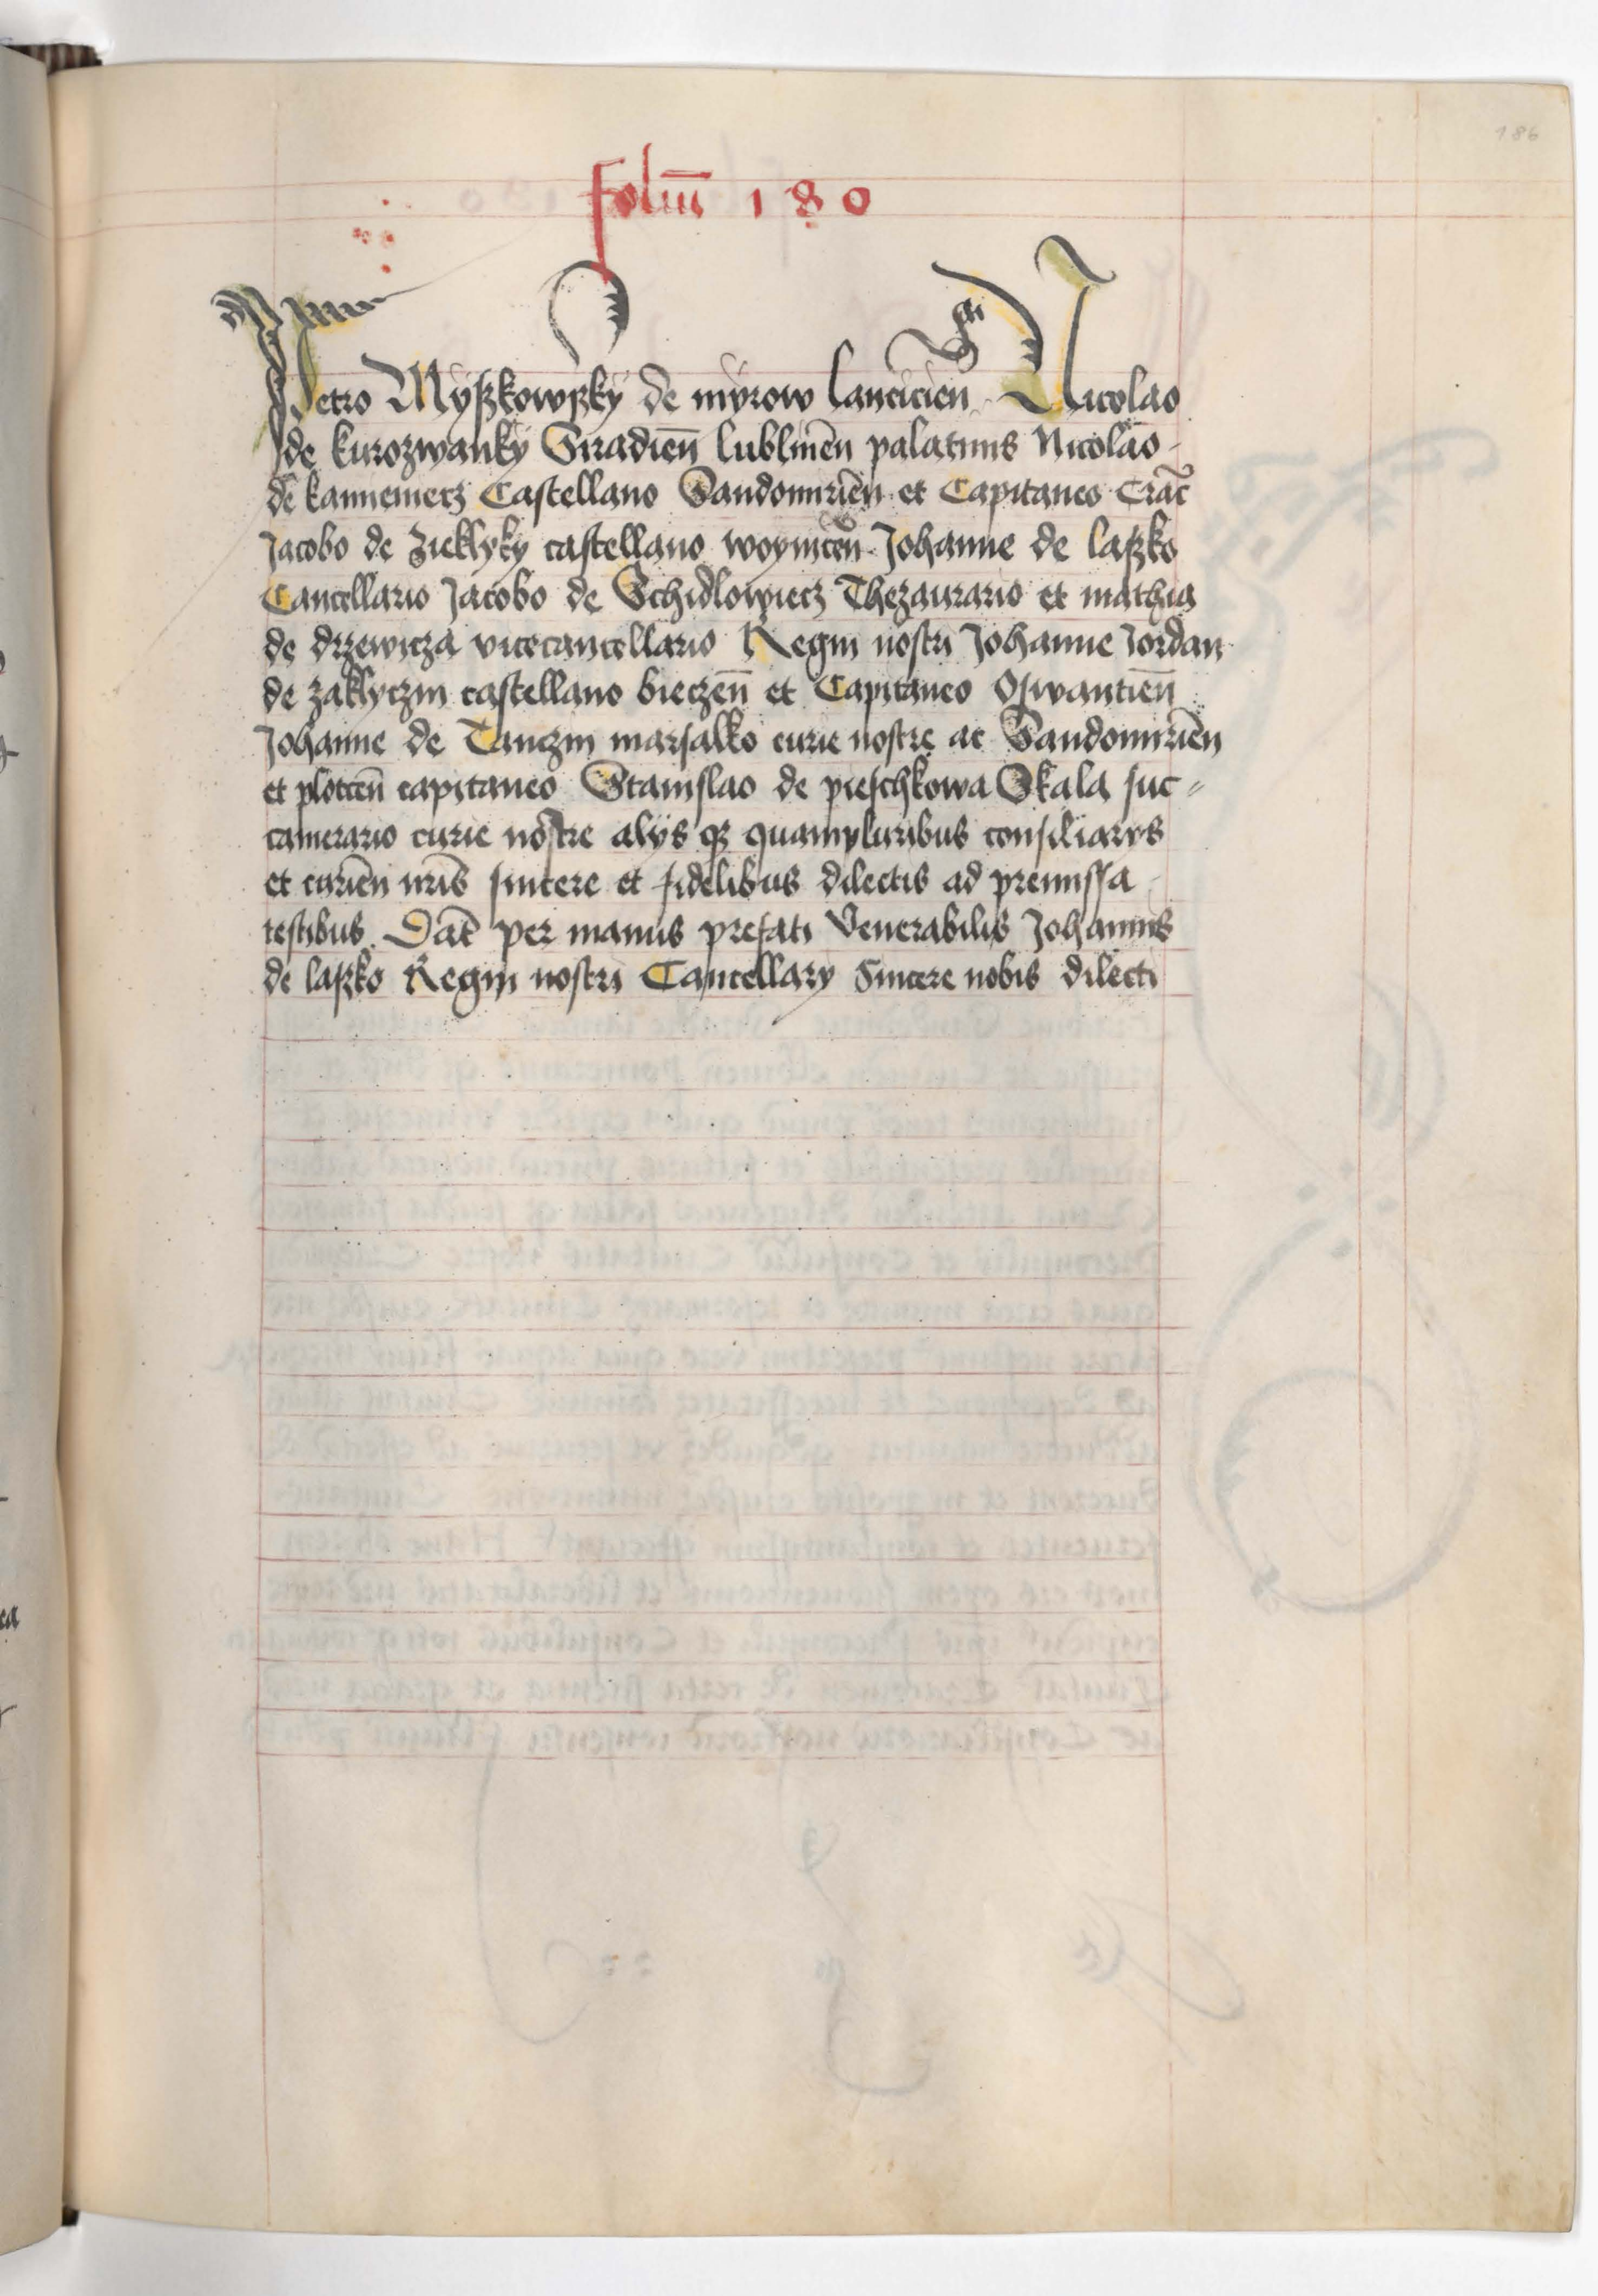 186
foliū 180
Petro Myßkowßky de myrow lancicien Nicolao
de kurozwanky Siradieñ lublineñ palatinis Nicolao
de kannemecz Castellano Sandomirieñ et Capitaneo Crac̃
Jacobo de Zieklyky castellano woyniceñ Johanne de laßko
Cancellario Jacobo de Schidlowiecz Thezaurario et mathia
de drzewicza vicecancellario Regni nostri Johanne Jordan
de zaklyczin castellano bieczeñ et Capitaneo Oswantieñ
Johanne de Tanczin marsalko curie nostre ac Sandomirieñ
et ploceñ capitaneo Stanislao de pieschkowa Skala suc-
camerario curie nostre alys qꝫ quampluribus consiliarys
et curieñ nr̃is sincere et fidelibus dilectis ad premissa
testibus Dat̃ per manus prefati Venerabilis Johannis
de laßko Regni nostri Cancellary Sincere nobis dilecti